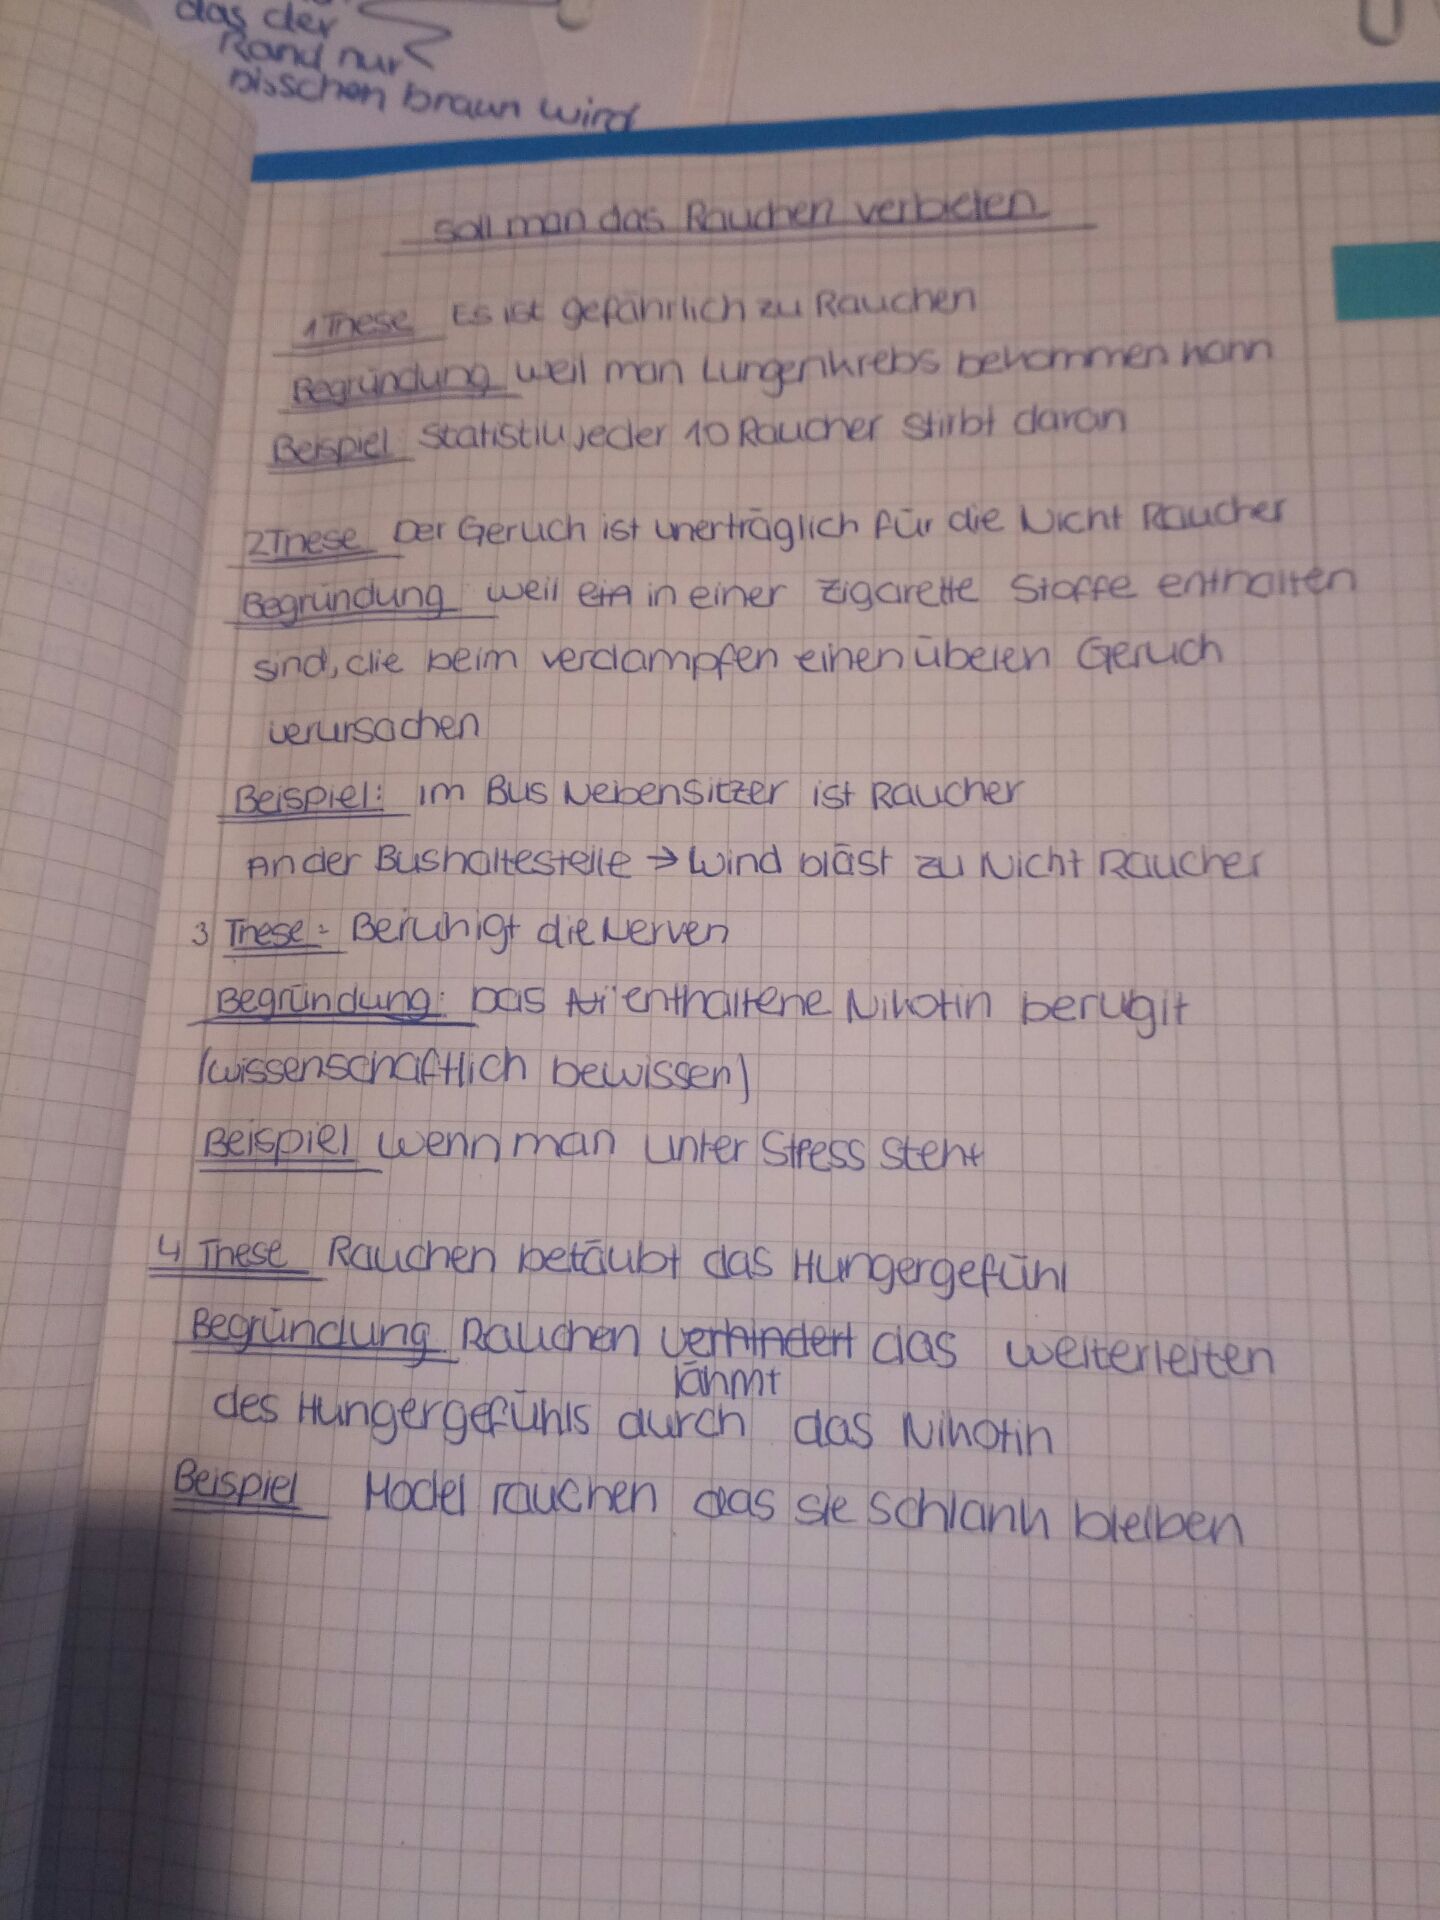 das der
Rand nur
bisschen braun wird
soll man das Rauchen verbieten
1 These Es ist gefährlich zu Rauchen
Begründung weil man Lungenkrebs bekommen kann
Beispiel Statistik jeder 10 Raucher stirbt daran
2 These Der Geruch ist unerträglich für die Nicht Raucher
Begründung weil ein in einer Zigarette Stoffe enthalten
sind, die beim verdampfen einen übelen Geruch
verursachen
Beispiel: im Bus Nebensitzer ist Raucher
An der Bushaltestelle → Wind bläst zu Nicht Raucher
3 These: Beruhigt die Nerven
Begründung: Das Ni enthaltene Nikotin berugit
(wissenschaftlich bewissen)
Beispiel wenn man unter Stress steht
4 These Rauchen betäubt das Hungergefühl
Begründung Rauchen verhindert das weiterleiten
lähmt
des Hungergefühls durch das Nikotin
Beispiel Model rauchen das sie schlank bleiben